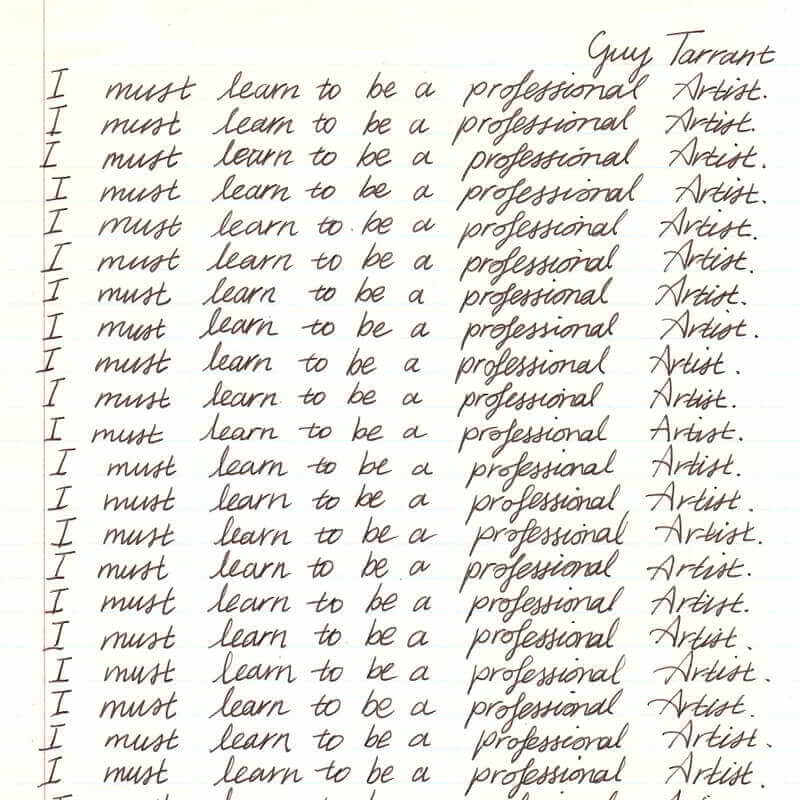 Guy Tarrant
I must learn to be a professional Artist.
I must learn to be a professional Artist.
I must learn to be a professional Artist.
I must learn to be a professional Artist.
I must learn to be a professional Artist.
I must learn to be a professional Artist.
I must learn to be a professional Artist.
I must learn to be a professional Artist.
I must learn to be a professional Artist.
I must learn to be a professional Artist.
I must learn to be a professional Artist.
I must learn to be a professional Artist.
I must learn to be a professional Artist.
I must learn to be a professional Artist.
I must learn to be a professional Artist.
I must learn to be a professional Artist.
I must learn to be a professional Artist.
I must learn to be a professional Artist.
I must learn to be a professional Artist.
I must learn to be a professional Artist.
I must learn to be a professional Artist.